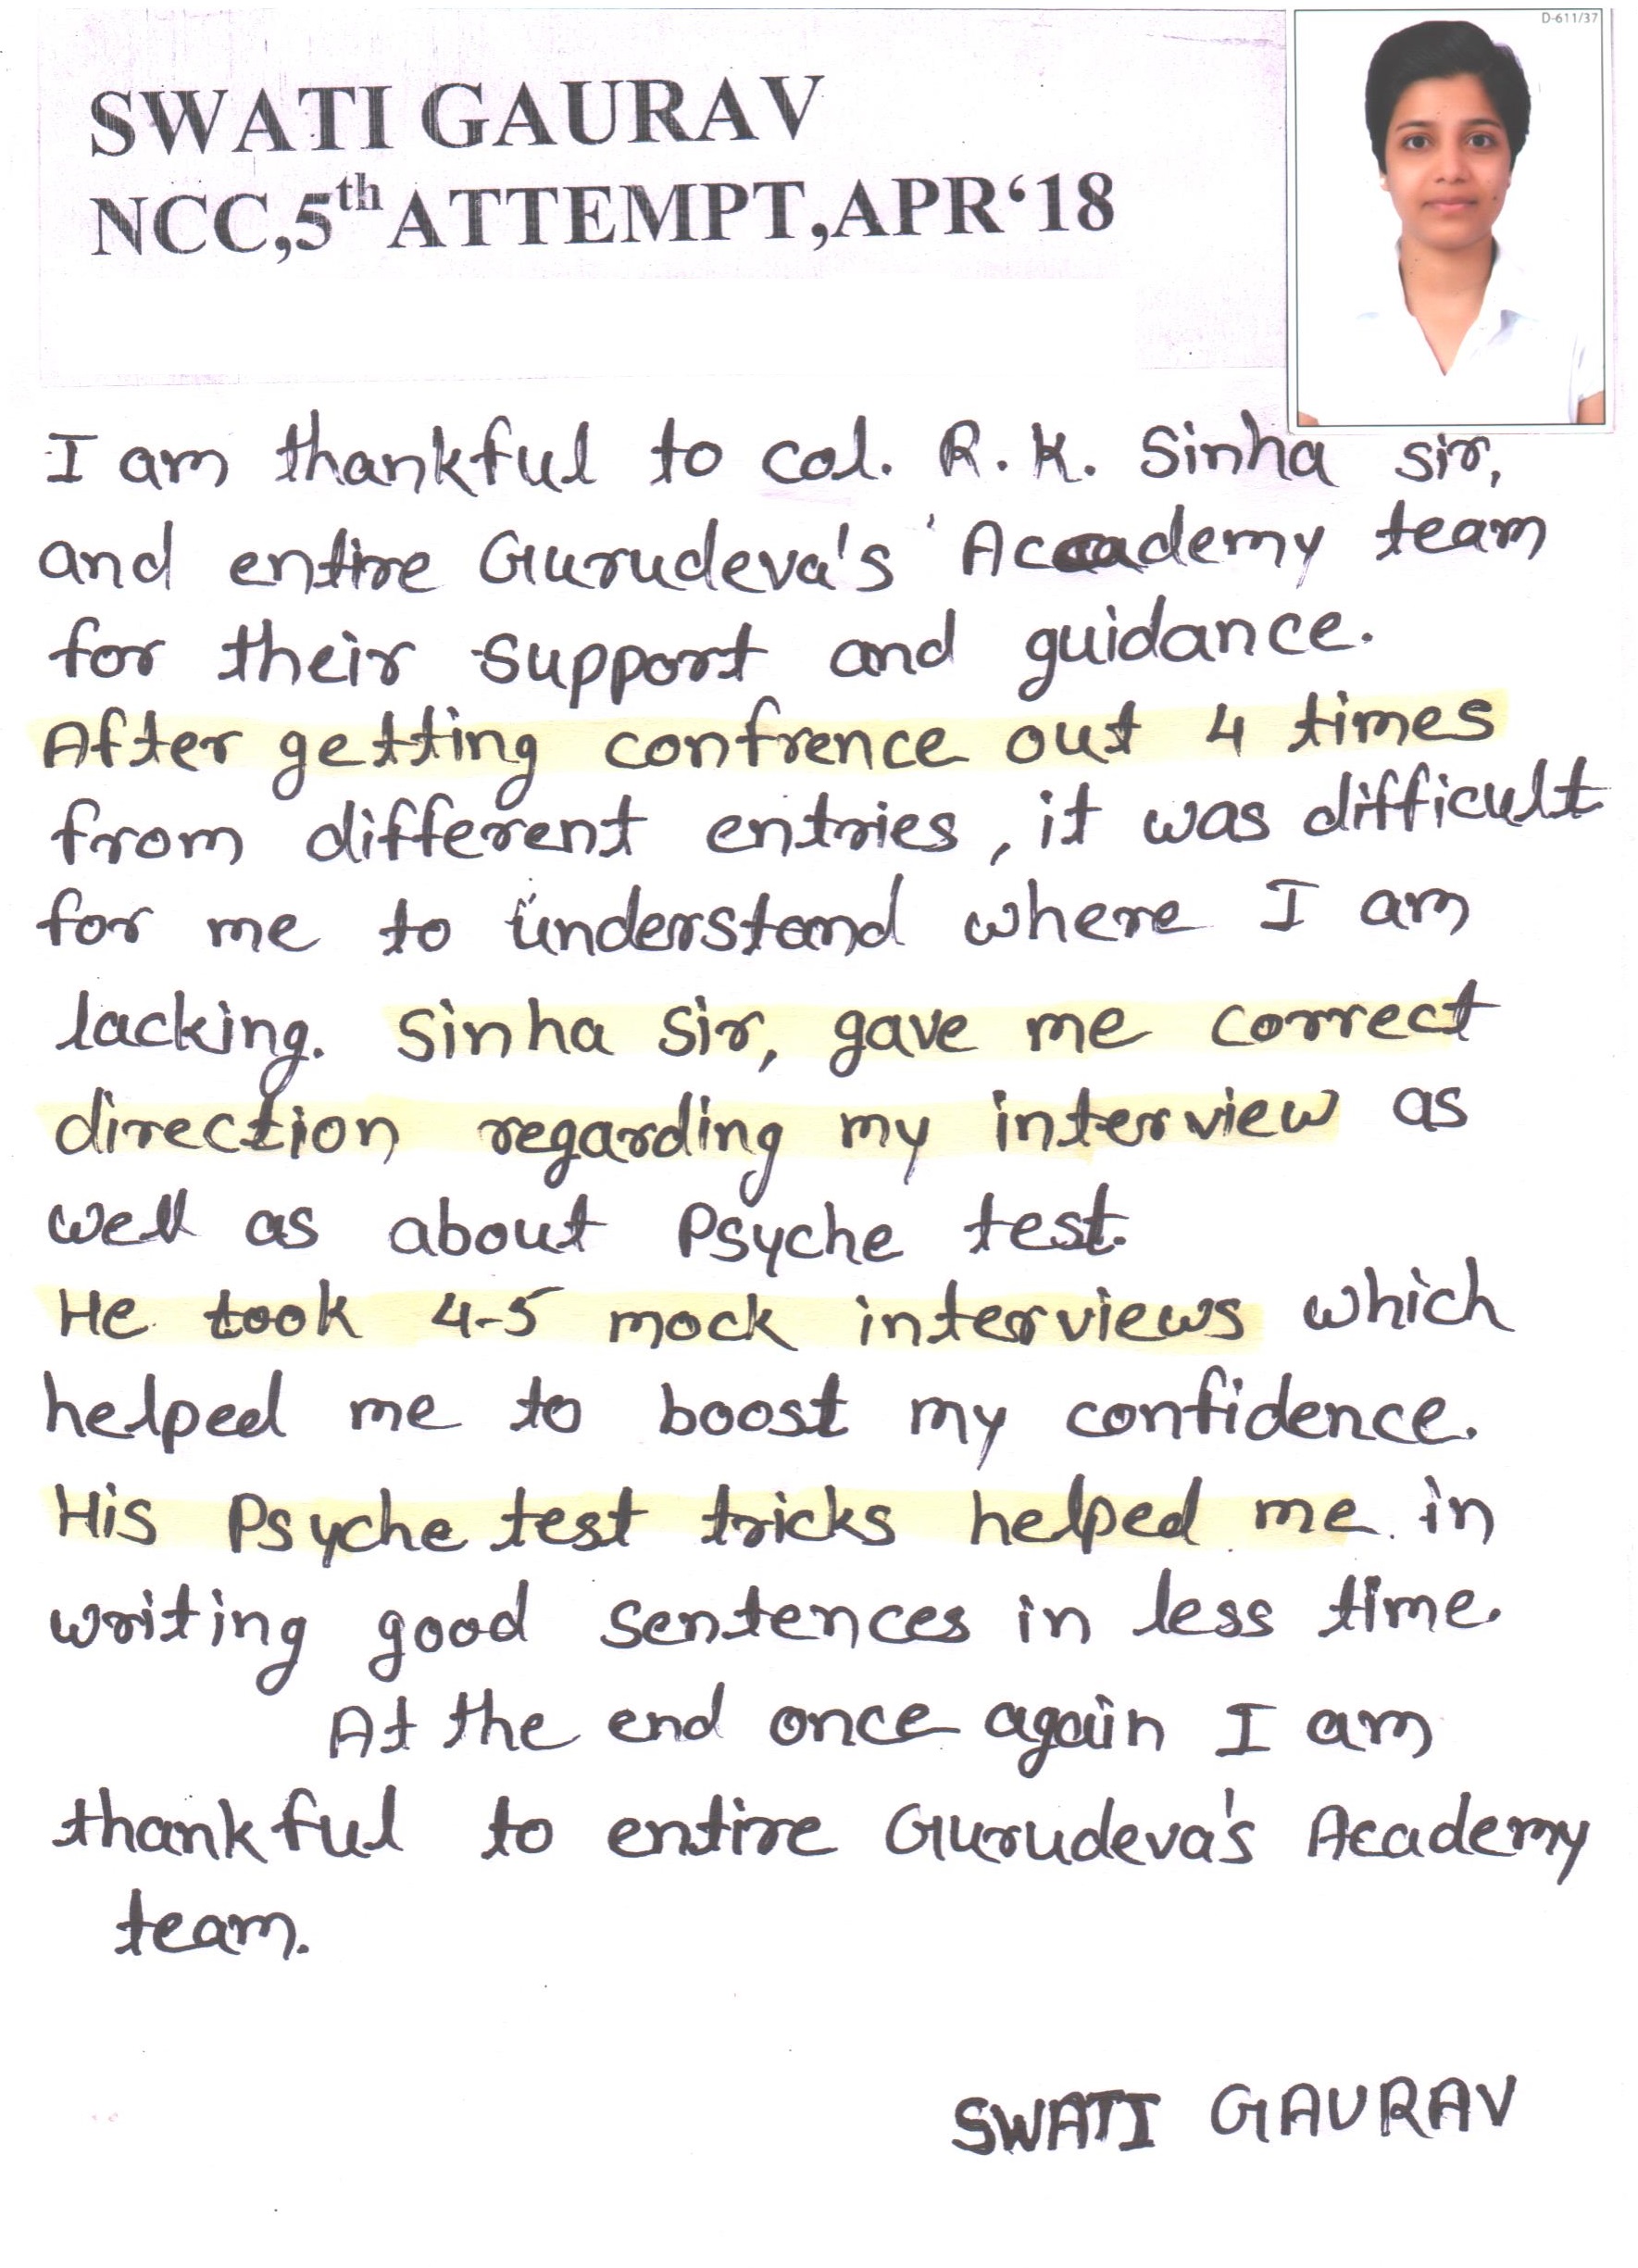 D-611/37
SWATI GAURAV
NCC,5th ATTEMPT,APR‘18
I am thankful to col. R. K. Sinha sir,
and entire Gurudeva's Academy team
for their support and guidance.
After getting confrence out 4 times
from different entries, it was difficult
for me to understand where I am
lacking. Sinha Sir, gave me correct
direction regarding my interview as
well as about Psyche test.
He took 4-5 mock interviews which
helped me to boost my confidence.
His Psyche test tricks helped me in
writing good sentences in less time.
At the end once again I am
thankful to entire Gurudeva's Academy
team.
SWATI GAURAV